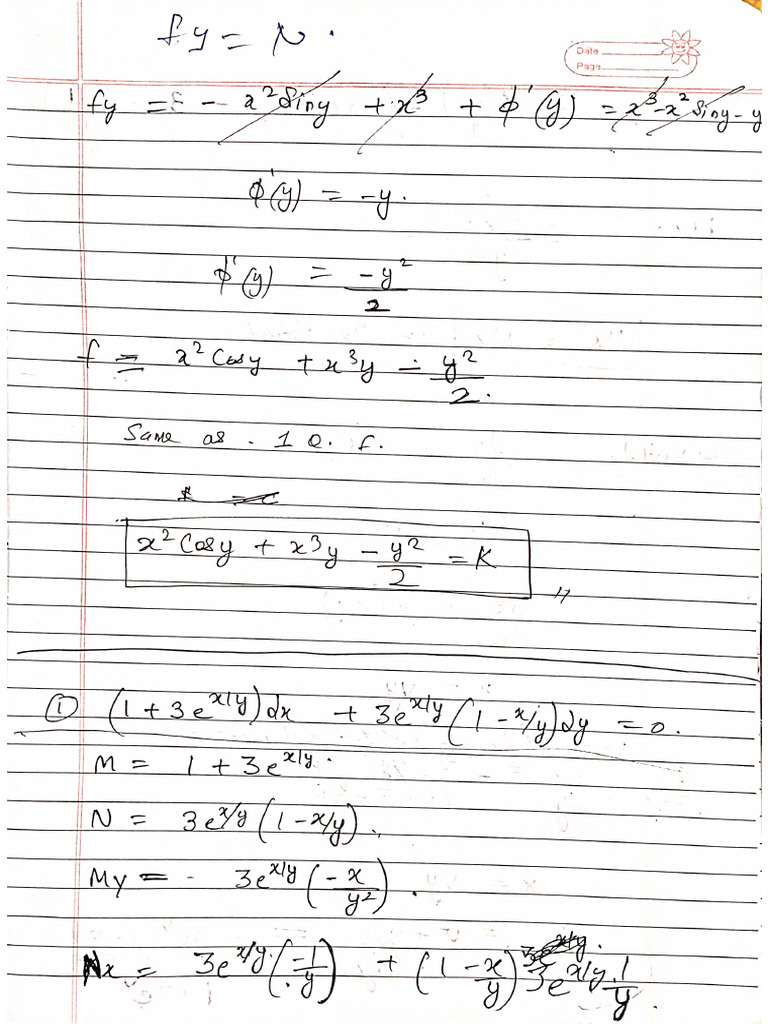 fy = N.
Date
Page
fy = - x² Siny + x³ + ϕ'(y) = x³ - x² Siny - y
ϕ'(y) = -y.
ϕ'(y) = -y²/2
f = x² Cosy + x³y - y²/2.
Same as . 1 Q. f.
x² Cosy + x³y - y²/2 = K
① (1 + 3e^x/y) dx + 3e^x/y (1 - x/y) dy = 0.
M = 1 + 3e^x/y.
N = 3e^x/y (1 - x/y).
My = 3e^x/y (-x/y²).
Nx = 3e^x/y. (-1/y) + (1 - x/y) 3e^x/y . 1/y.